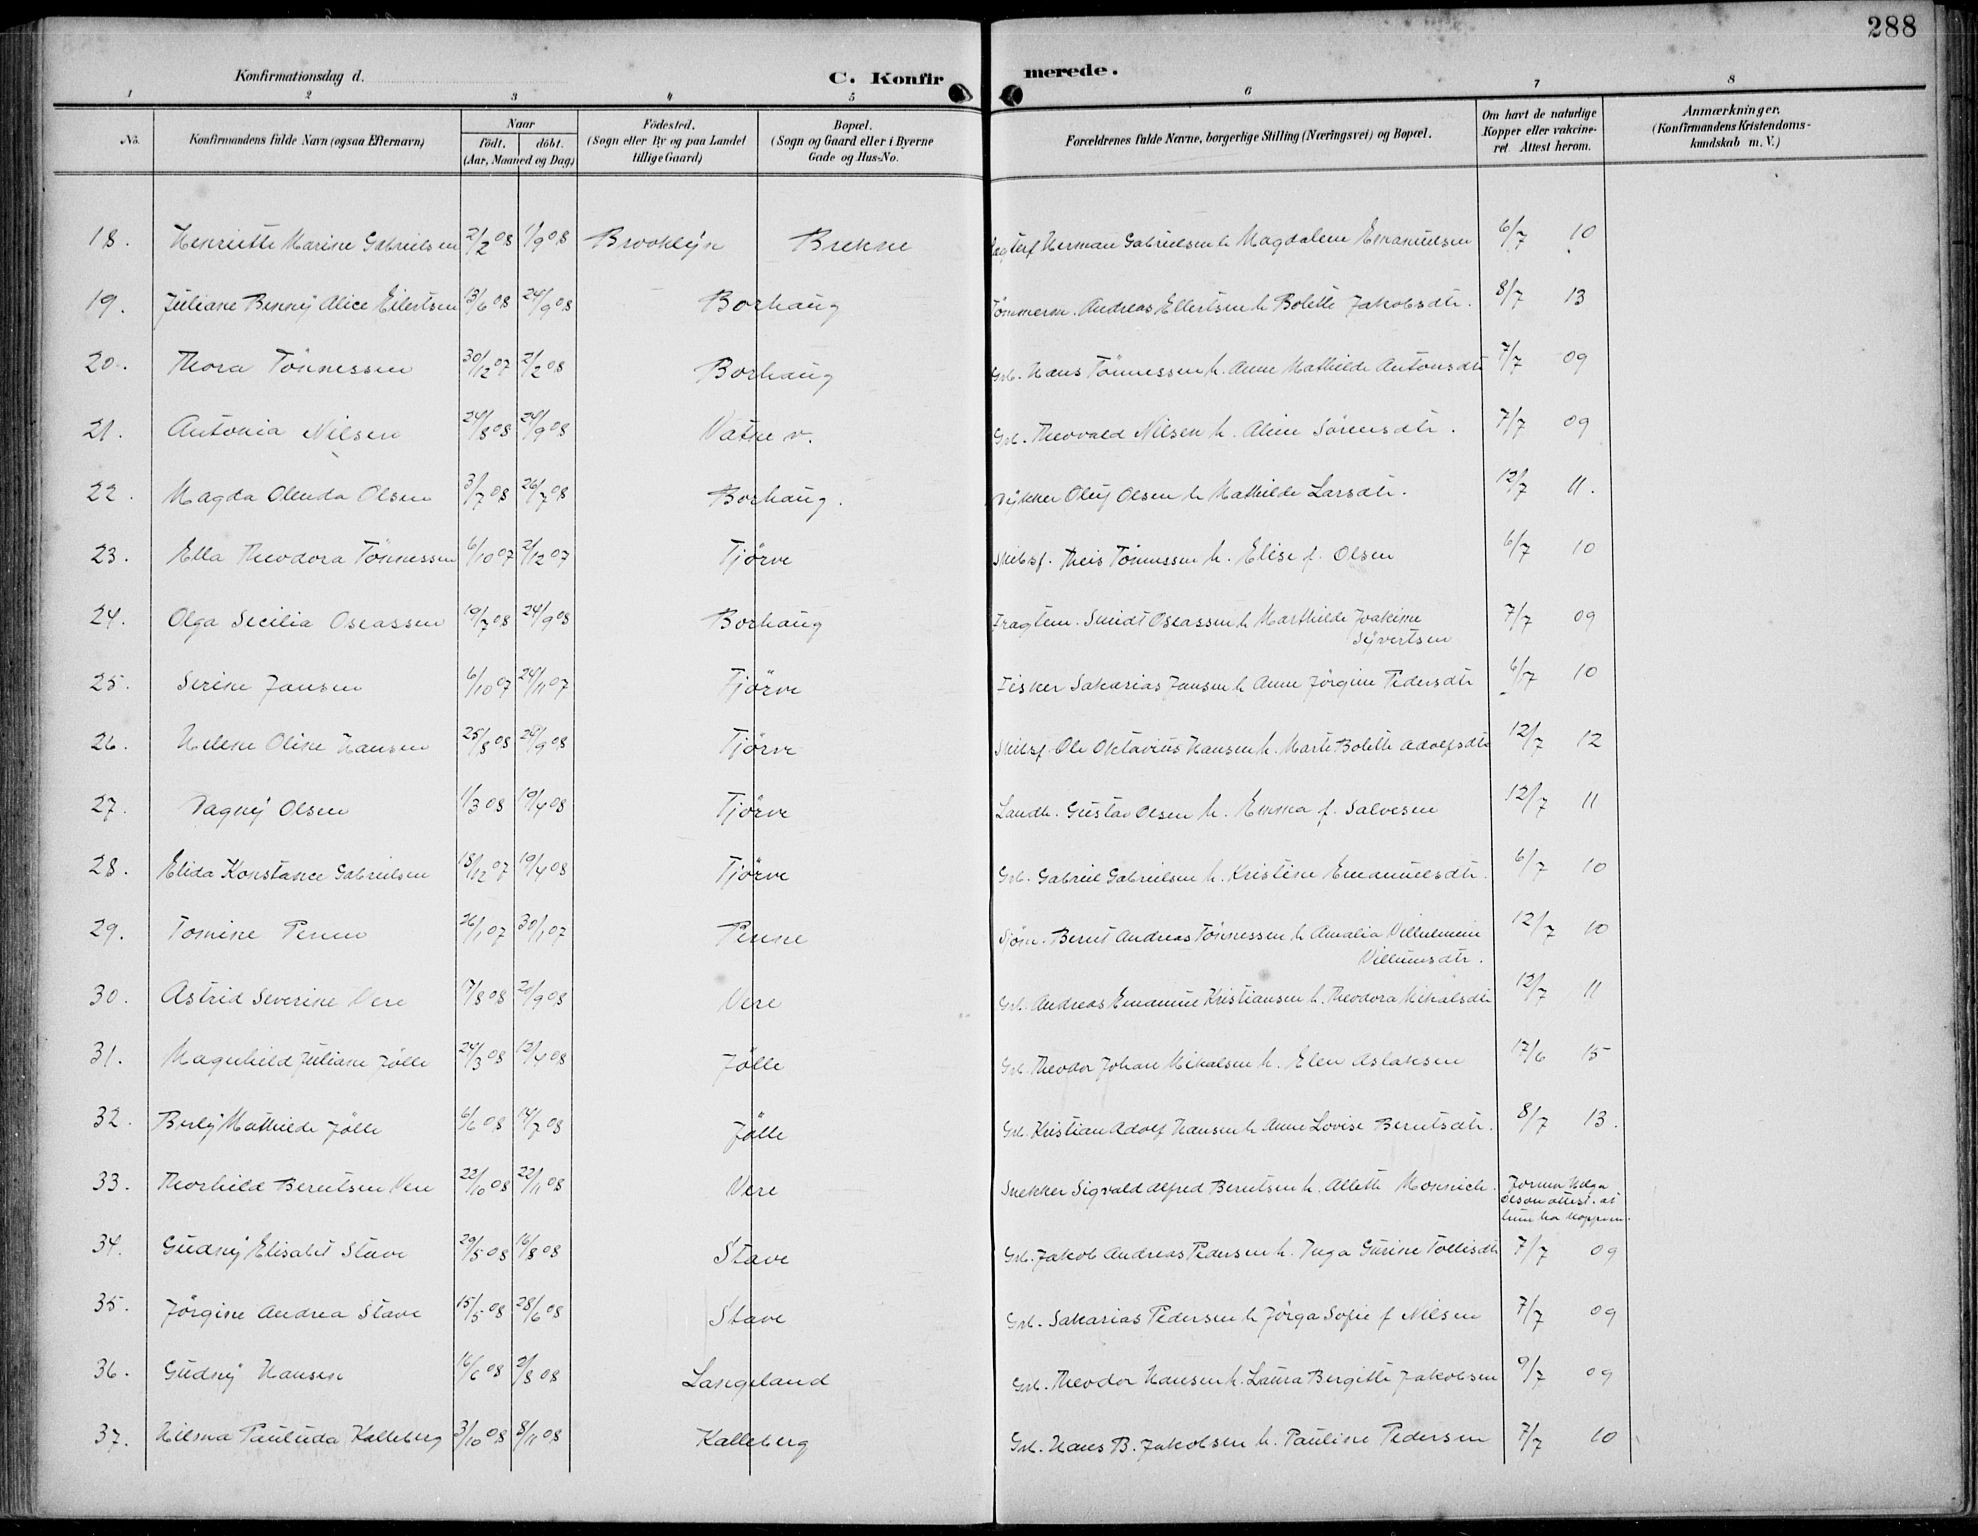 288
Konfirmationsdag d. C. Konfirmerede.
1 2 3 4 5 6 7 8
No. Konfirmandens fulde Navn (ogsaa Efternavn) Naar födt. döbt. (Aar, Maaned og Dag) Födested. (Sogn eller By og paa Landet tillige Gaard) Bopæl. (Sogn og Gaard eller i Byerne Gade og Hus-No. Forældrenes fulde Navne, borgerlige Stilling (Næringsvei) og Bopæl. Om havt de naturlige Kopper eller vakcineret. Attest herom. Anmærkninger. (Konfirmandens Kristendomskundskab m. V.)
18. Henriette Marine Gabrielsen 2/2 08 1/9 08 Brooklyn Brekne Herman Gabrielsen h. Magdalene Emanuelsen 6/7 10
19. Juliane Benny Alice Eilertsen 13/6 08 24/9 08 Borhaug Tömmerm. Andreas Eilertsen h. Bolette Jakobsdtr. 8/7 13
20. Thora Tönnessen 30/12 07 2/2 08 Borhaug Grb. Hans Tönnessen h. Anne Mathilde Antonsdtr 7/7 09
21. Antonia Nilsen 24/8 08 24/9 08 Vatne v. Grb. Theovald Nilsen h. Aline Sörensdtr. 7/7 09
22. Magda Olenda Olsen 3/7 08 26/7 08 Borhaug. Dykker Oluf Olsen h. Mathilde Larsdtr. 12/7 11.
23. Ella Theodora Tönnessen 6/10 07 2/12 07 Tjörve Skibsf. Theis Tönnessen h. Elise f. Olsen 6/7 10
24. Olga Secilia Oseassen 19/7 08 24/9 08 Borhaug Fragtem. Smidt Oseassen h. Marthilde Joakime Syvertsen 7/7 09
25. Serine Jansen 6/10 07 24/11 07 Tjörve Fisker Sakarias Jansen h. Anne Jörgine Pedersdtr 6/7 10
26. Helene Oline Hansen 25/8 08 29/9 08 Tjörve Skibsf. Ole Oktavius Hansen h. Marte Bolette Adolfsdtr 12/7 12
27. Dagny Olsen 1/3 08 19/4 08 Tjörve Landh. Gustav Olsen h. Emma f. Salvesen 12/7 11
28. Elida Konstance Gabrielsen 18/12 07 19/4 08 Tjörve Grb. Gabriel Gabrielsen h. Kristine Emanuelsdtr. 6/7 10
29. Tomine Penne 26/1 07 30/1 07 Penne Sjöm. Bernt Andreas Tönnessen h. Amalia Vilhelmine Villumsdtr. 12/7 10
30. Astrid Severine Vere 7/8 08 20/9 08 Vere Grb. Andreas Emanuel Kristiansen h. Theodora Mikalsdtr 12/7 11
31. Magnhild Juliane Jölle 24/3 08 12/4 08 Jölle Grb. Theodor Johan Mikalsen h. Elen Aslaksen 17/6 15
32. Berly Mathilde Jölle 6/6 08 14/7 08 Jölle Grb. Kristian Adolf Hansen h. Anne Lovise Berntsdtr. 8/7 13.
33. Thorhild Berntsen Vere 22/10 08 22/11 08 Vere Snekker Sigvald Alfred Berntsen h. Allette Monnich. Jormor Helga Olson attest. at hun har koppem.
34. Gudny Elisabet Stave 29/5 08 16/8 08 Stave Grb. Jakob Andreas Pedersen h. Inga Gurine Tollisdtr 7/7 09
35. Jörgine Andrea Stave 15/5 08 28/6 08 Stave Grb. Sakarias Pedersen h. Jörga Sofie f Nilsen 7/7 09
36. Gudny Hansen 16/6 08 2/8 08 Langeland Grb. Theodor Hansen h. Laura Bergitte Jakobsen 9/7 09
37. Hilma Paulida Kalleberg 3/10 08 8/11 08 Kalleberg Grb. Hans B. Jakobsen h. Pauline Pedersen 7/7 10